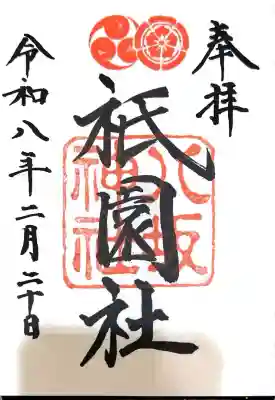 奉拝
祇園社
八坂神社
令和八年二月二十日